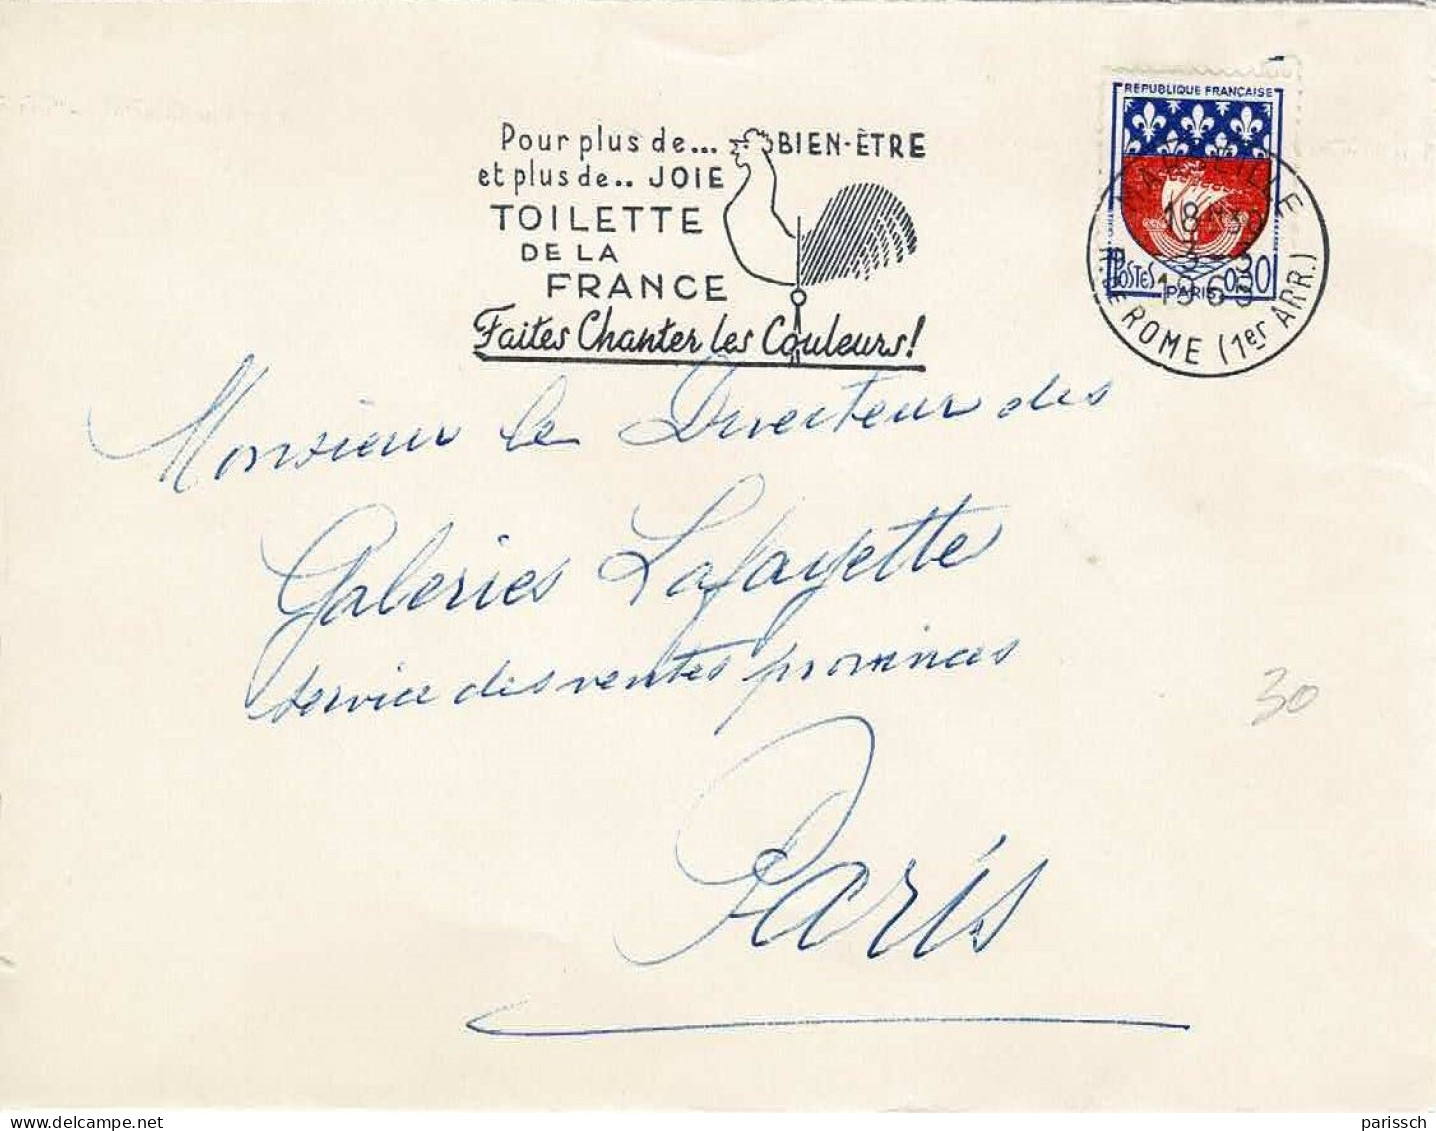 Pour plus de... BIEN-ÊTRE
et plus de.. JOIE
TOILETTE
DE LA
FRANCE
Faites Chanter les Couleurs!
REPUBLIQUE FRANÇAISE
POSTES PARIS 0,30
MARSEILLE
18H30
3-3
R. de ROME (1er ARR.)
Monsieur le Directeur des
Galeries Lafayette
service des ventes provinces
Paris
30
parissch